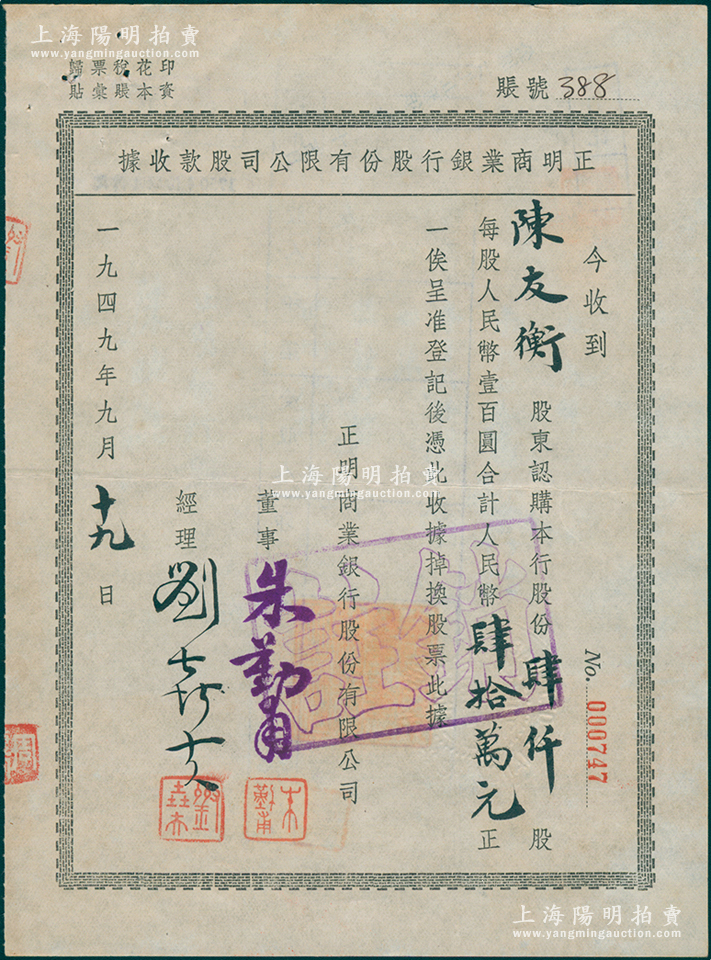 上海陽明拍賣
www.yangmingauction.com
印花稅票歸
資本賬彙貼
賬號 388
正明商業銀行股份有限公司股款收據
No. 000747
今收到
陳友衡 股東認購本行股份肆仟股
每股人民幣壹百圓合計人民幣肆拾萬元正
一俟呈准登記後憑此收據掉換股票此據
正明商業銀行股份有限公司
董事 朱勤甫
經理
一九四九年九月十九日
註銷
朱勤甫
上海陽明拍賣
www.yangmingauction.com
上海陽明拍賣
www.yangmingauction.com